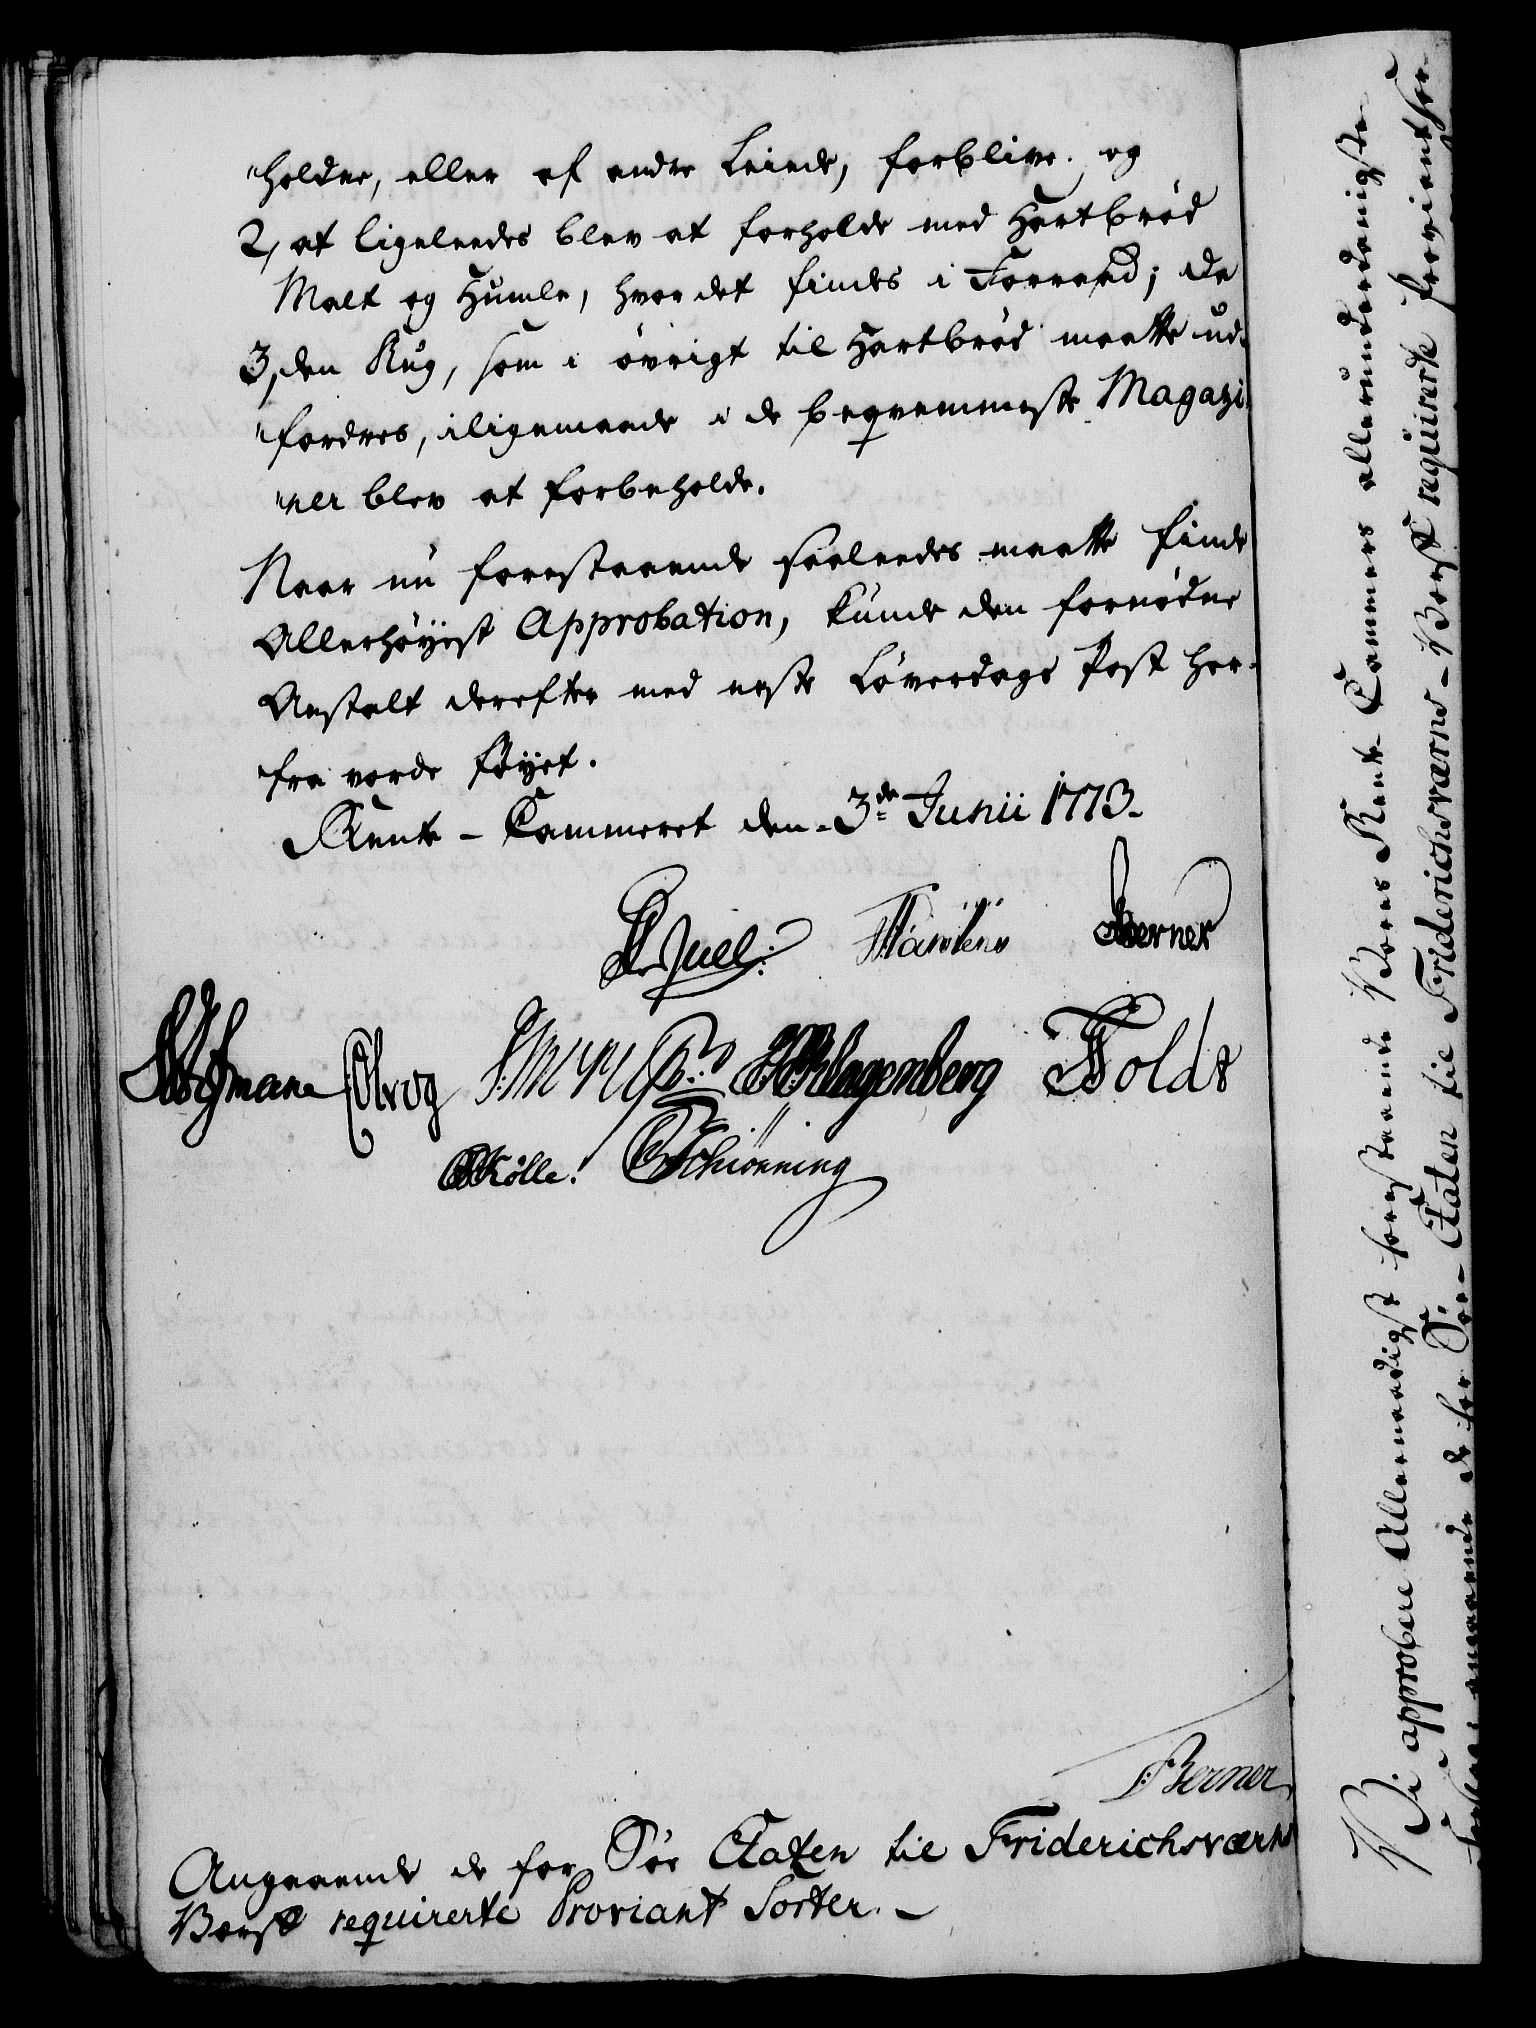 "holdne, eller af andre Leiede, forblive. og
2, at ligeleedes blev at forholde med Hartbrød
Malt og Humle, hvor det findes i Forraad; Da
3, den Rug, som i øvrigt til Hartbrød maatte ud-
"fordres, iligemaade i de beqvemmeste Magazi-
"ner blev at forbeholde.
Naar nu forestaaende saaleedes maatte finde
Allerhøyest Approbation, kunde den fornødne
Anstalt derefter med neste Løverdags Post her-
"fra vorde føyet.
Rente-Cammeret den 3de Junii 1773.
Juel. Berner
Klagenberg Foldt
Kølle. Schiønning
Berner
Angaaende de for Søe Etaten til Friderichsværns
Værft requirerte Proviant Sorter. –
Vi approbere Allernaadigst forestaaende Vores Rente-Cammers allerunderdanigste
angaaende de for Søe-Etaten til Friderichsværns-Værft requirerte Proviant Sor-